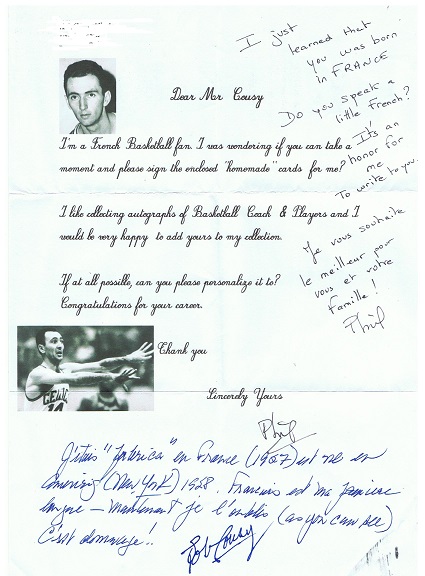 I just
learned that
you was born
in FRANCE
Do you speak a
little French?
It's an
honor for
me
To write to you.
Je vous souhaite
le meilleur pour
vous et votre
famille!
Phil
Dear Mr Cousy
I'm a French Basketball fan. I was wondering if you can take a
moment and please sign the enclosed "homemade" cards for me?
I like collecting autographs of Basketball Coach & Players and I
would be very happy to add yours to my collection.
If at all possible, can you please personalize it to?
Congratulations for your career.
Thank you
Sincerely Yours
Phil
J'étais "fabriqué" en France (1927) et né en
(New York) 1928. Francais est ma
langue — maintenant je (as you can see)
C'est dommage!!
Bob Cousy
CELTICS
14